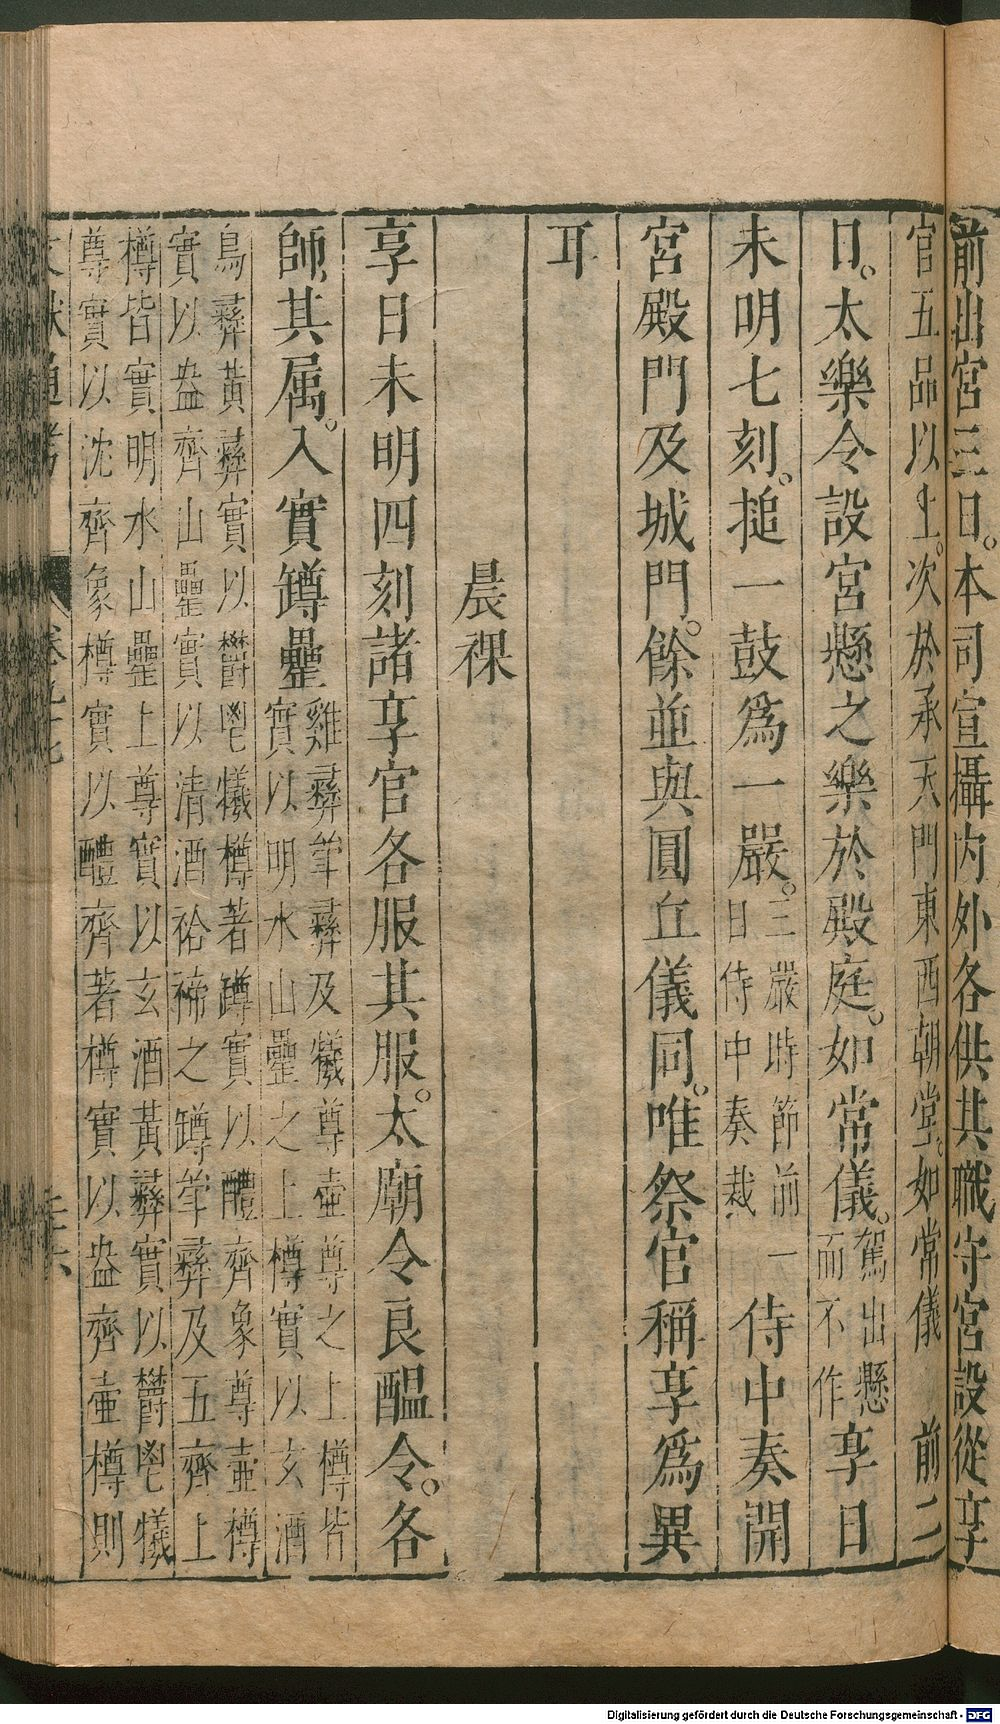 前出宮三日。本司宣攝內外各供其職守宮設從享
官五品以上。次於承天門東西朝堂。如常儀　前二
日。太樂令設宮懸之樂於殿庭。如常儀。駕出懸而不作　享日
未明七刻。搥一鼓爲一嚴。三嚴時節前一日侍中奏裁　侍中奏開
宮殿門及城門。餘並與圓丘儀同。唯祭官稱享爲異
耳
晨祼
享日未明四刻諸享官各服其服。太廟令良醞令。各
師其属。入實罇罍雞彝斝彝及犧尊壺尊之上樽皆實以明水山罍之上樽實以玄酒
鳥彝黃彝實以鬱鬯犧樽著罇實以醴齊象尊壺樽
實以盎齊山罍實以清酒祫禘之罇斝彝及五齊上
樽皆實明水山罍上尊實以玄酒黃彝實以鬱鬯犧
尊實以沈齊象樽實以醴齊著樽實以盎齊壺樽則
通考 卷九十七
Digitalisierung gefördert durch die Deutsche Forschungsgemeinschaft - DFG